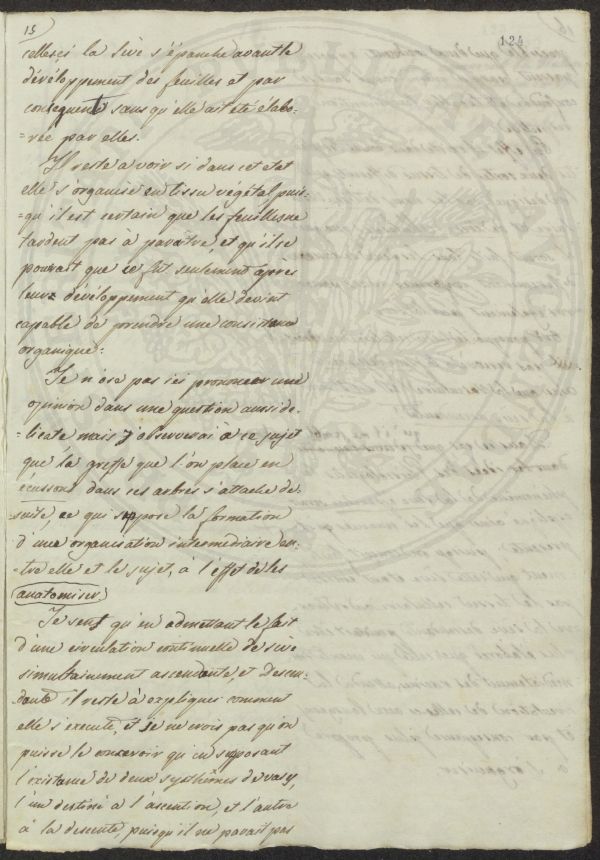 15
124
celles ci la sève s'épanche avant le
dévéloppement des feuilles et par
consequent sans qu'elle ait été élabo-
=rée par elles.
Il reste a voir si dans cet etat
elle s'organise en tissu végétal puis-
=qu'il est certain que les feuilles ne
tardent pas à paraitre et qu'il se
pourrait que ce fut seulement après
leur dévéloppement qu'elle devint
capable de prendre une consistance
organique.
Je n'ose pas ici prononcer une
opinion dans une question aussi dé-
=licate mais j'observerai à ce sujet
que la greffe que l'on place en
écusson dans ces arbres s'attache de
suite, ce qui suppose la formation
d'une organisation intermediaire en-
=tre elle et le sujet, à l'effet de les
anatomiser.
Je sens qu'en admettant le fait
d'une circulation continuelle de sève
simultainement ascendante, et descen-
=dante il reste à expliquer comment
elle s'execute, et je ne crois pas qu'on
puisse le concevoir qu'en supposant
l'existance de deux systhèmes de vases,
l'un destiné à l'ascention, et l'autre
à la descente, puisqu'il ne parait pas